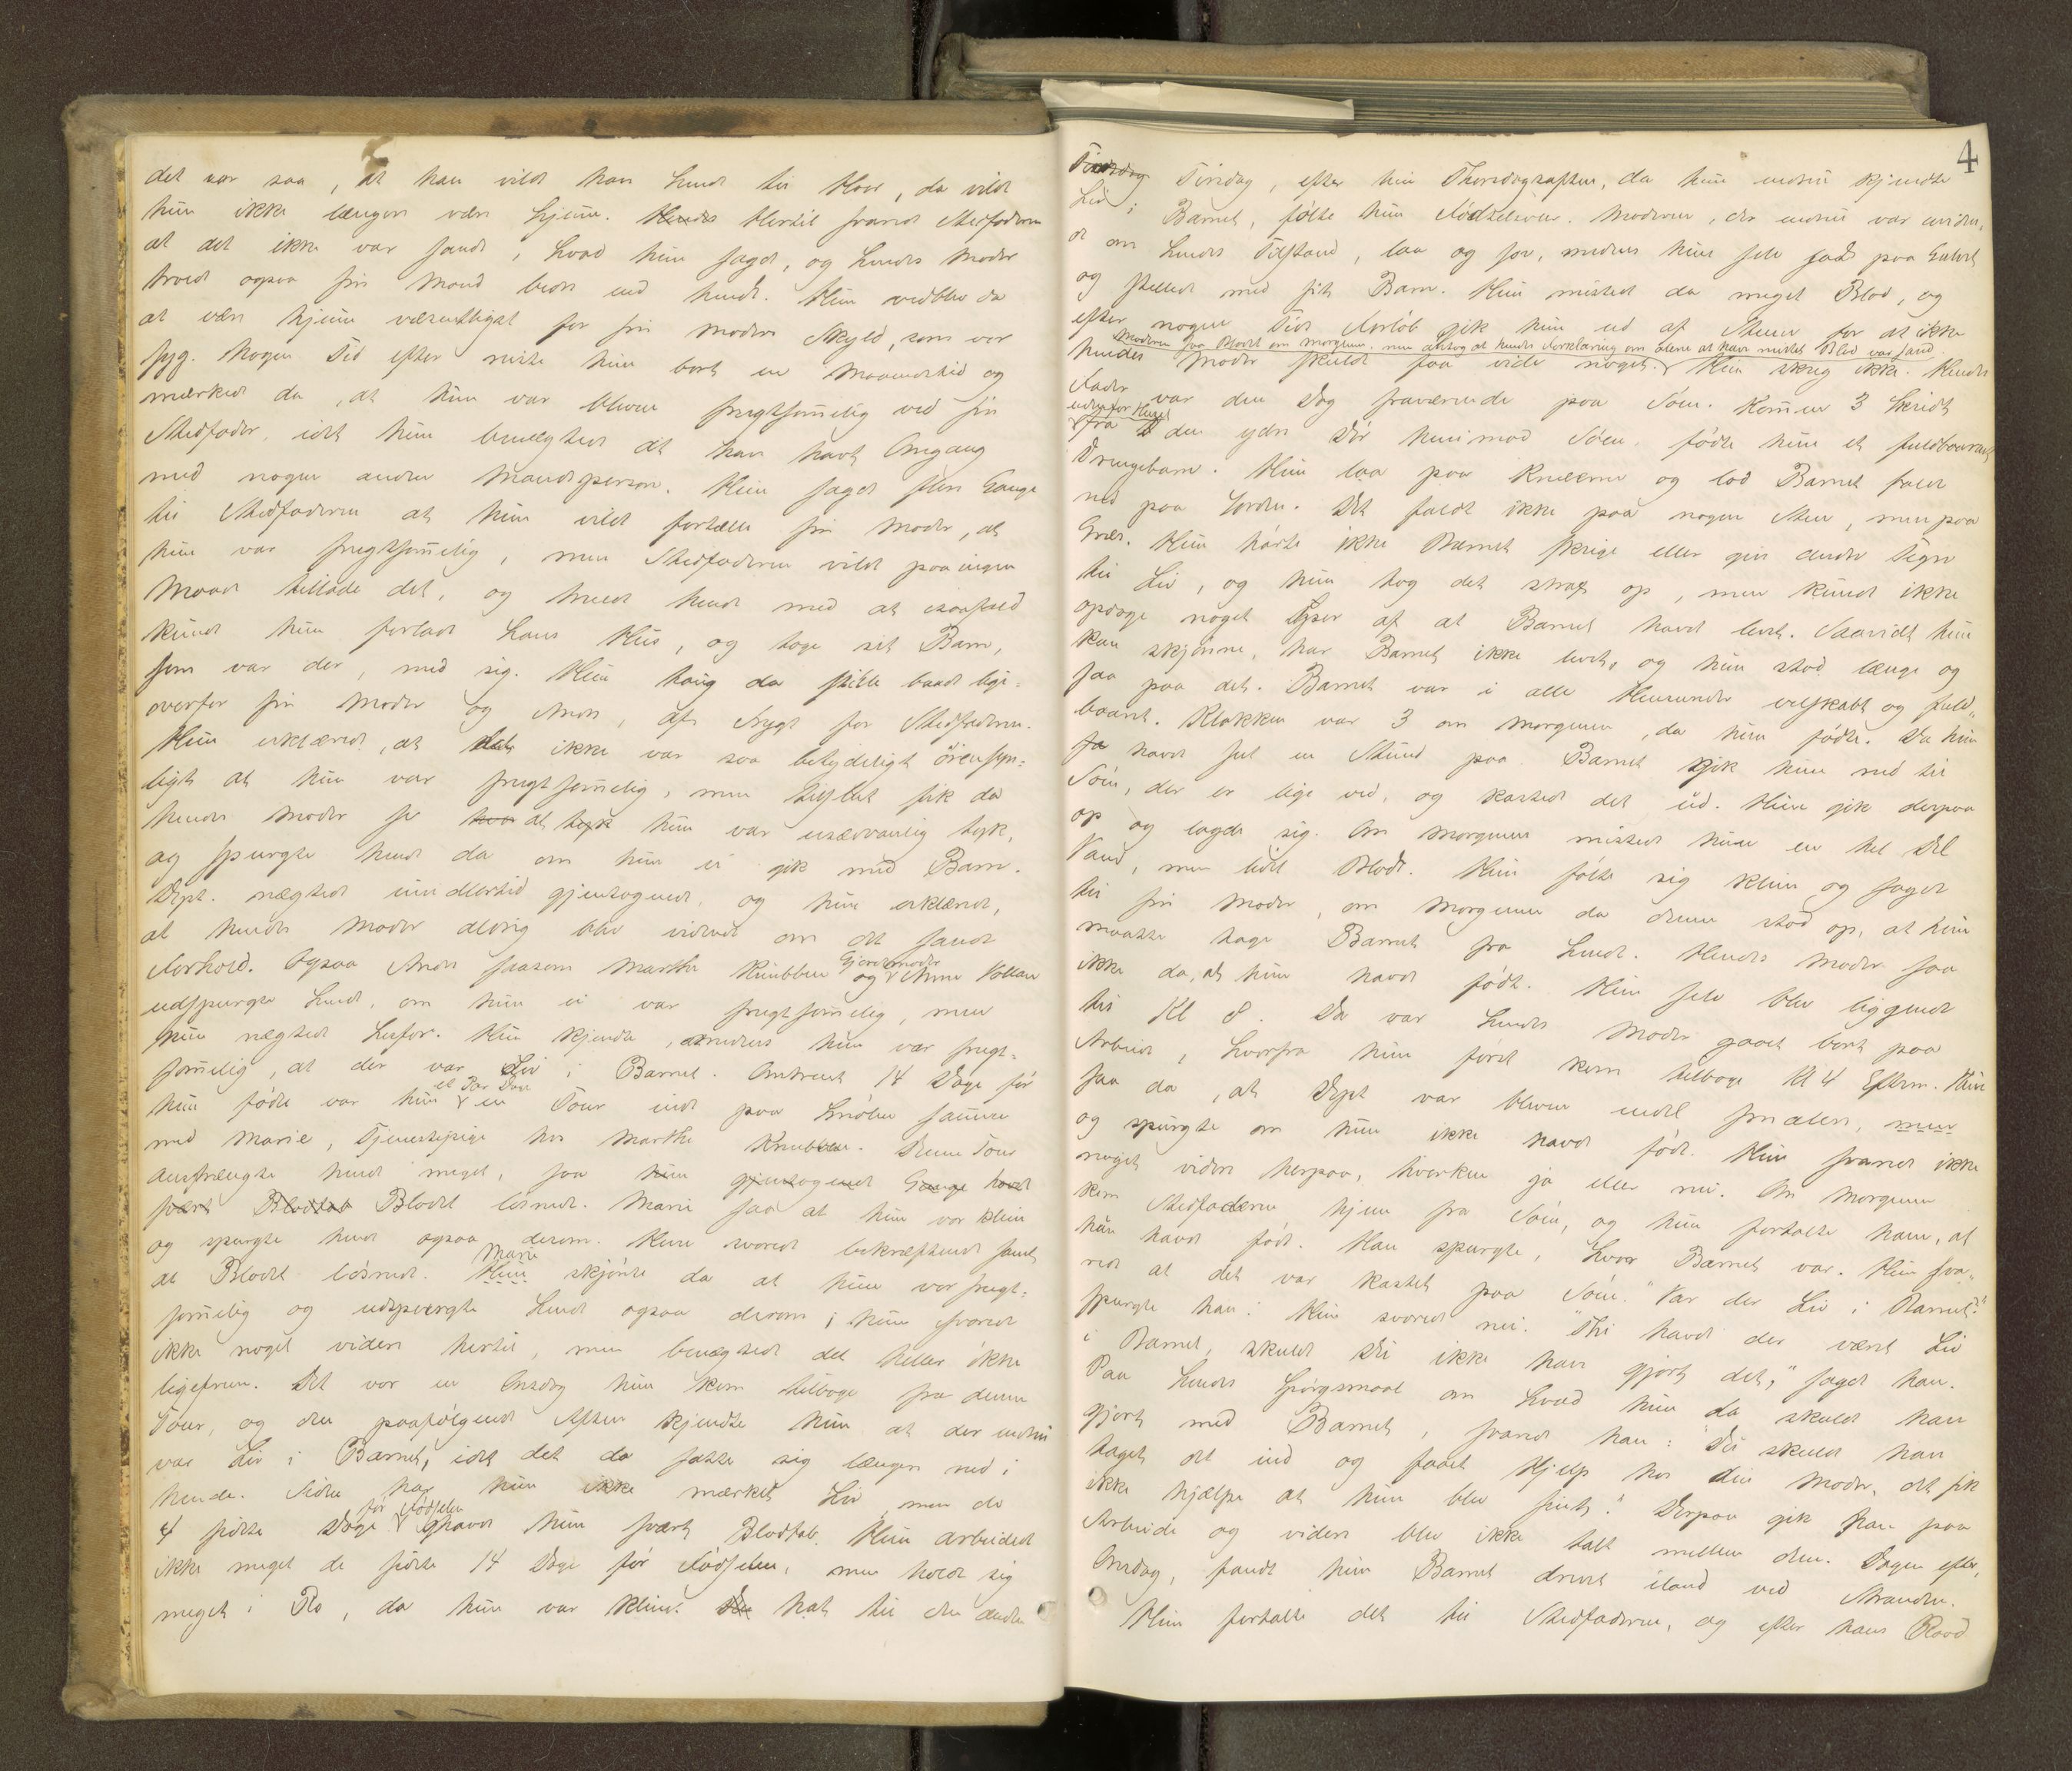 det var saa, at han vilde have hende til Hore, da vilde
hun ikke længere være hjemme. Hendes Hertil svarede Stedfaderen
at det ikke var sandt, hvad hun sagde, og hendes Moder
troede ogsaa sin Mand bedre end hende. Hun vedblev da
at være hjemme væsentligst for sin Moders Skyld, som var
syg. Nogen Tid efter reiste hun bort en Maanedstid og
mærkede da, at hun var bleven frugtsommelig ved sin
Stedfader, idet hun benægtede at have havt Omgang
med nogen anden Mandsperson. Hun sagde flere Gange
til Stedfaderen at hun vilde fortælle sin Moder, at
hun var frugtsommelig, men Stedfaderen vilde paa ingen
Maade tillade det, og truede hende med at isaafald
kunde hun forlade hans Hus, og tage sit Barn,
som var der, med sig. Hun taug da stille baade lige-
overfor sin Moder og Andre, af Frygt for Stedfaderen.
Hun erklærede, at det ikke var saa betydeligt öiensyn-
ligt at hun var frugtsommelig, men tilsidst fik da
hendes Moder se hva at tyk hun var usædvanlig tyk,
og spurgte hende da om hun ei gik med Barn.
Dept. nægtede imidlertid gjentagende, og hun erklærede,
at hendes Moder aldrig blev vidende om det sande
Forhold. Ogsaa Andre saasom Marthe Knubben og Gjordemoder Anne Kollan
udspurgte hende, om hun ei var frugtsommelig, men
hun nægtede herfor. Hun kjendte, medens hun var frugt-
sommelig, at der var Liv i Barnet. Omtrent 14 Dage før
hun fødte var hun et Par Dage en Tour inde paa samme
med Marie, Tjenestepige hos Marthe Knubben. Denne Tour
anstrængte hende meget, saa hun gjentagende Gange havde
svært Blodtab Blodet løsnede. Marie saa at hun var klein
og spurgte hende ogsaa derom. Hun svarede bekræftende samt
at Blodet løsnede. Hun Marie skjönte da at hun var frugt-
sommelig og udspurgte hende ogsaa derom; hun svarede
ikke noget videre hertil, men benægtede det heller ikke
ligefrem. Det var en Onsdag hun kom tilbage fra denne
Tour, og den paafølgende Aften kjendte hun at der endnu
var Liv i Barnet, idet det da satte sig længere ned i
hende. Siden har hun ikke mærket Liv, men de
4 sidste Dage før Fødselen havde hun svært Blodtab. Hun arbeidede
ikke meget de sidste 14 Dage før Fødselen, men holdt sig
meget i Ro, da hun var klein. Den Nat til den anden
4
Tirsdag Tirsdag, efter hin Thorsdagsaften, da hun endnu kjendte
Liv i Barnet, følte hun Fødselsveer. Moderen, der endnu var uviden-
de om hendes Tilstand, laa og sov, medens hun selv sad paa Gulvet
og stellede med sit Barn. Hun mistede da meget Blod, og
efter nogen Tids Forløb gik hun ud af Stuen for at ikke
Moderen saa Blodet om Morgenen, men antog at hendes Forklaring om alene at have mistet Blod var sand.
hendes Moder skulde faa vide noget. Hun skreg ikke. Hendes
Fader var den Dag fraværende paa Søen. Kommen 3 Skridt
udenfor Huset
fra den ydre Dør henimod Søen, fødte hun et fuldbaarent
Drengebarn. Hun laa paa Knæerne og lod Barnet falde
ned paa Jorden. Det faldt ikke paa nogen Sten, men paa
Græs. Hun hørte ikke Barnet skrige eller give andre Tegn
til Liv, og hun tog det strax op, men kunde ikke
opdage noget Spor af at Barnet havde levet. Saavidt hun
kan skjønne, har Barnet ikke levet, og hun stod længe og
saa paa det. Barnet var i alle Henseender velskabt og fuld-
baaret. Klokken var 3 om Morgenen, da hun fødte. Da hun
havde set en Stund paa Barnet gik hun ned til
Søen, der er lige ved, og kastede det ud. Hun gik derpaa
op og lagde sig. Om Morgenen mistede hun en hel Del
Vand, men lidet Blod. Hun følte sig klein og sagde
til sin Moder, om Morgenen da denne stod op, at hun
maatte tage Barnet fra hende. Hendes Moder saa
ikke da, at hun havde født. Hun selv blev liggende
til Kl 8. Da var hendes Moder gaaet bort paa
Arbeide, hvorfra hun først kom tilbage Kl 4 Efterm. Hun
saa da, at Dept var bleven endel smalere, men
og spurgte om hun ikke havde født. Hun svarede ikke
noget videre herpaa, hverken ja eller nei. Om Morgenen
kom Stedfaderen hjem fra Søen, og hun fortalte ham, at
hun havde født. Han spurgte, hvor Barnet var. Hun sva-
rede at det var kastet paa Søen. "Var der Liv i Barnet?"
spurgte han. Hun svarede nei. "Thi havde der været Liv
i Barnet, skulde Du ikke have gjort det," sagde han.
Paa hendes Spørgsmaal om hvad hun da skulde have
gjort med Barnet, svarede han: "Du skulde have
taget det ind og faaet Hjelp hos din Moder, det fik
ikke hjælpe at hun blev sint." Derpaa gik han paa
Arbeide og videre blev ikke talt mellem dem. Dagen efter,
Onsdag, fandt hun Barnet drevet iland ved Stranden.
Hun fortalte det til Stedfaderen, og efter hans Raad